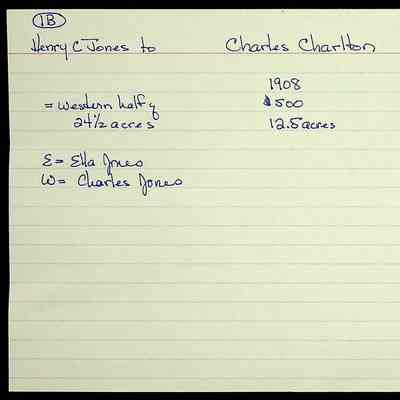 1B
Henry C Jones to Charles Charlton
1908
= western half of $500
24 1/2 acres 12.5 acres
E = Ella Jones
W = Charles Jones